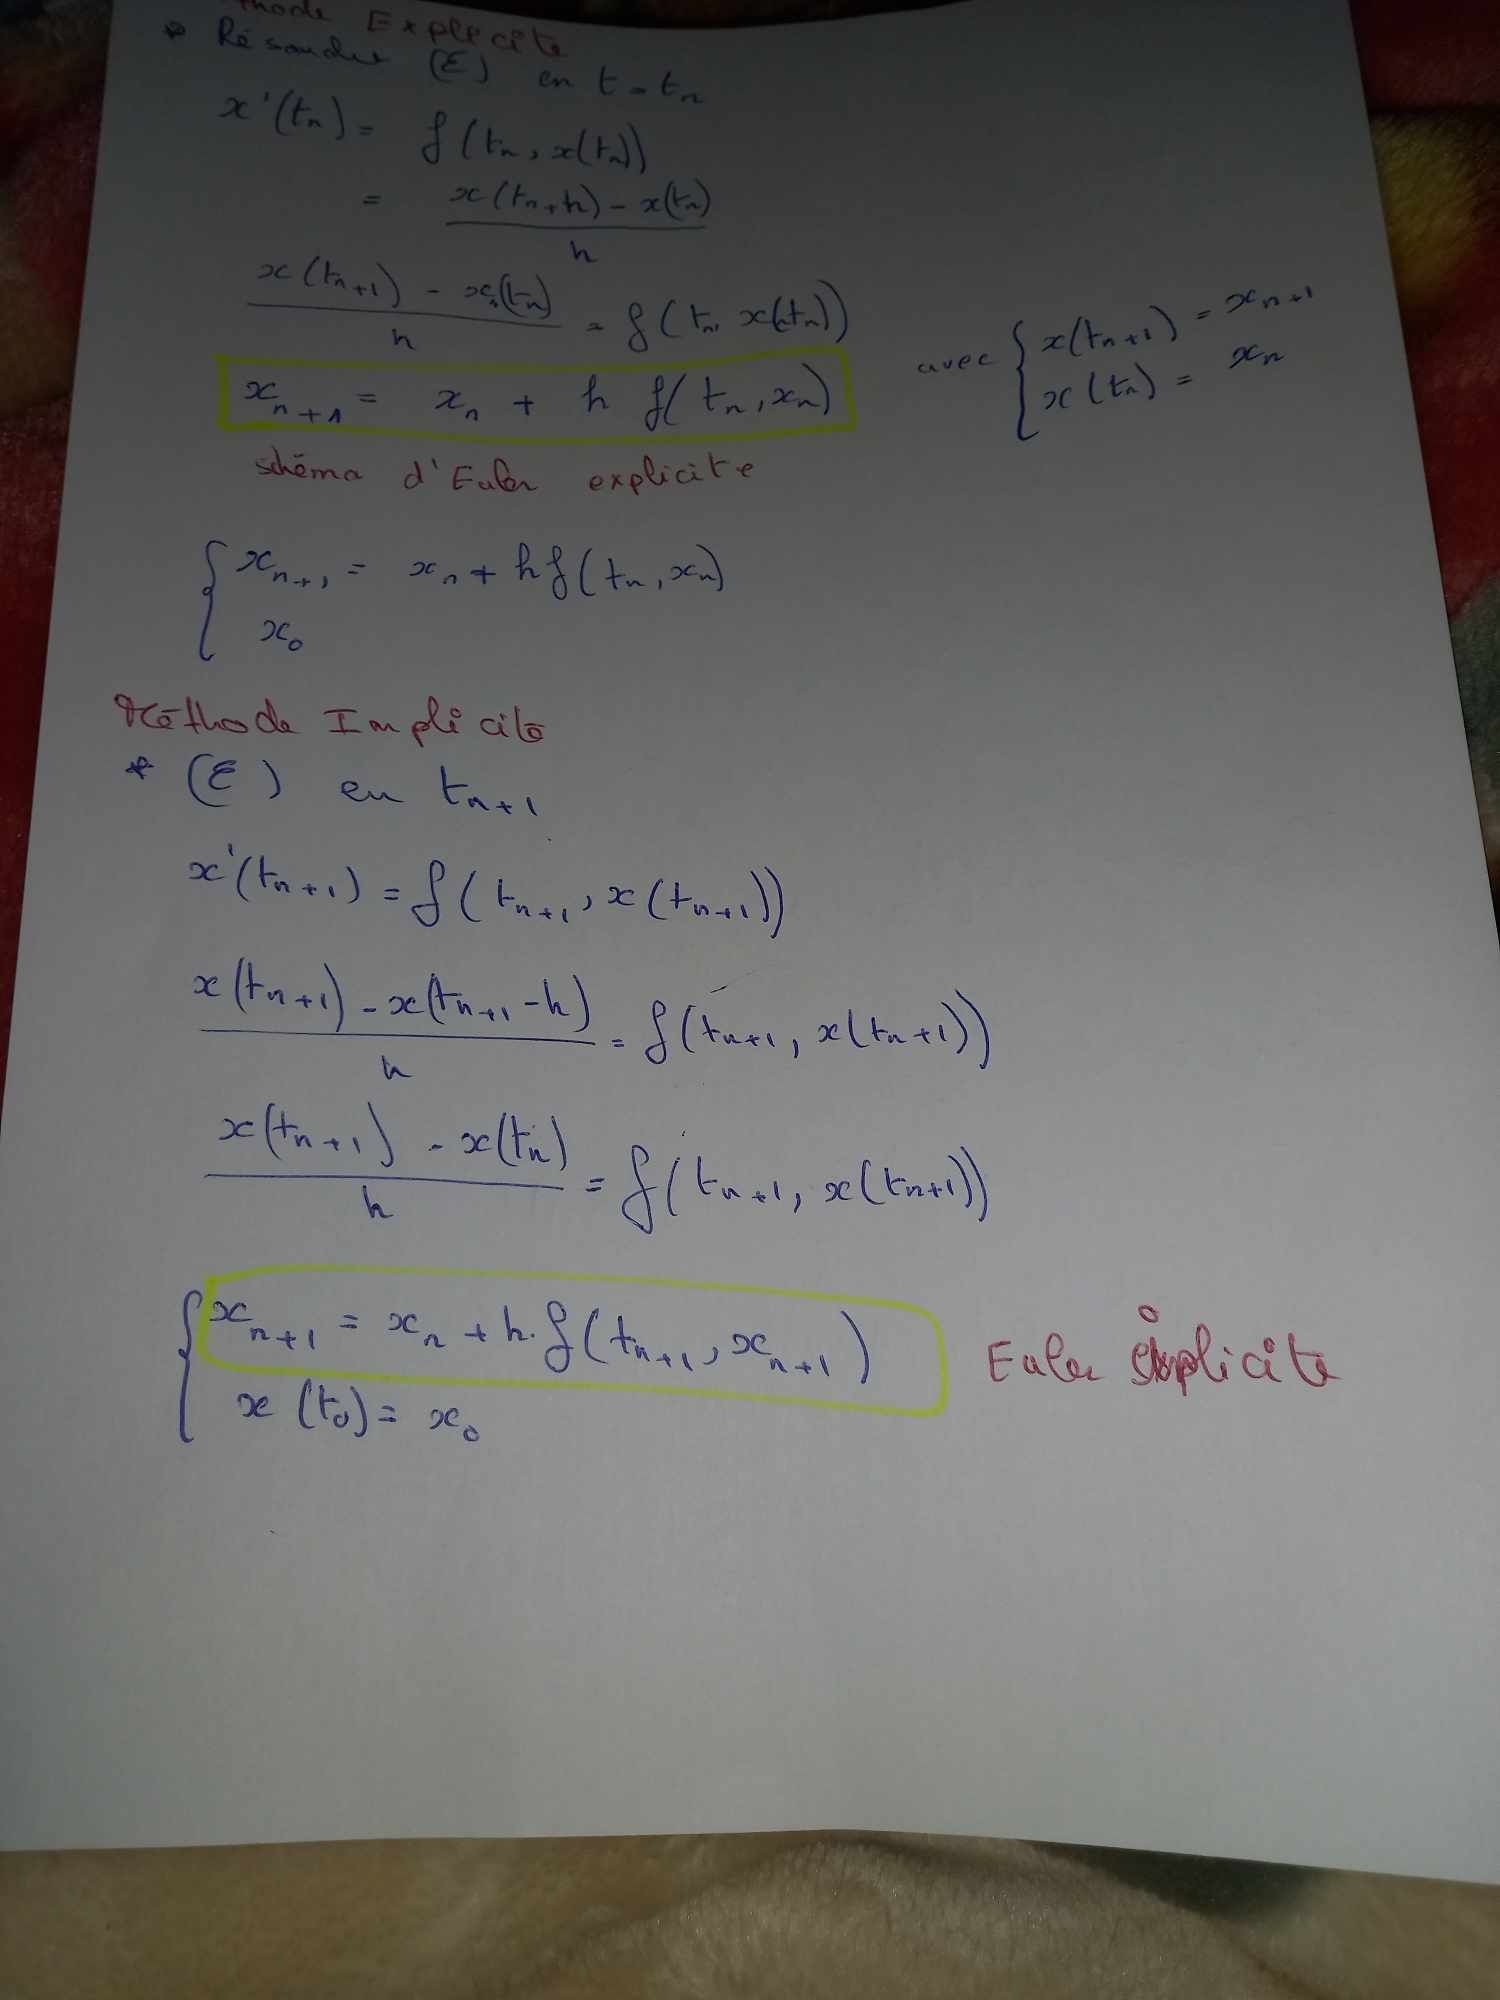 thode Explicite
* Résoudre (E) en t = tn
x'(tn) = f(tn, x(tn))
= x(tn+h) - x(tn) / h
x(tn+1) - x(tn) / h = f(tn, x(tn))
avec { x(tn+1) = xn+1
x(tn) = xn
xn+1 = xn + h f(tn, xn)
schéma d'Euler explicite
{ xn+1 = xn + h f(tn, xn)
x0
Méthode Implicite
* (E) en tn+1
x'(tn+1) = f(tn+1, x(tn+1))
x(tn+1) - x(tn+1 - h) / h = f(tn+1, x(tn+1))
x(tn+1) - x(tn) / h = f(tn+1, x(tn+1))
{ xn+1 = xn + h. f(tn+1, xn+1)
Euler implicite
x(t0) = x0